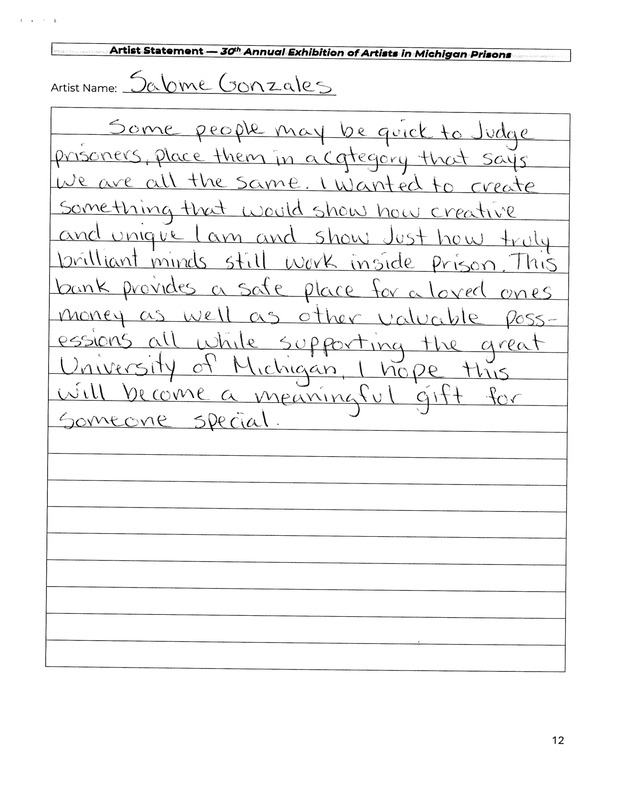 Artist Statement — 30th Annual Exhibition of Artists in Michigan Prisons
Artist Name: Salome Gonzales
Some people may be quick to Judge
prisoners, place them in a category that says
we are all the same. I wanted to create
something that would show how creative
and unique I am and show Just how truly
brilliant minds still work inside prison. This
bank provides a safe place for a loved ones
money as well as other valuable poss-
essions all while supporting the great
University of Michigan. I hope this
will become a meaningful gift for
someone special.
12